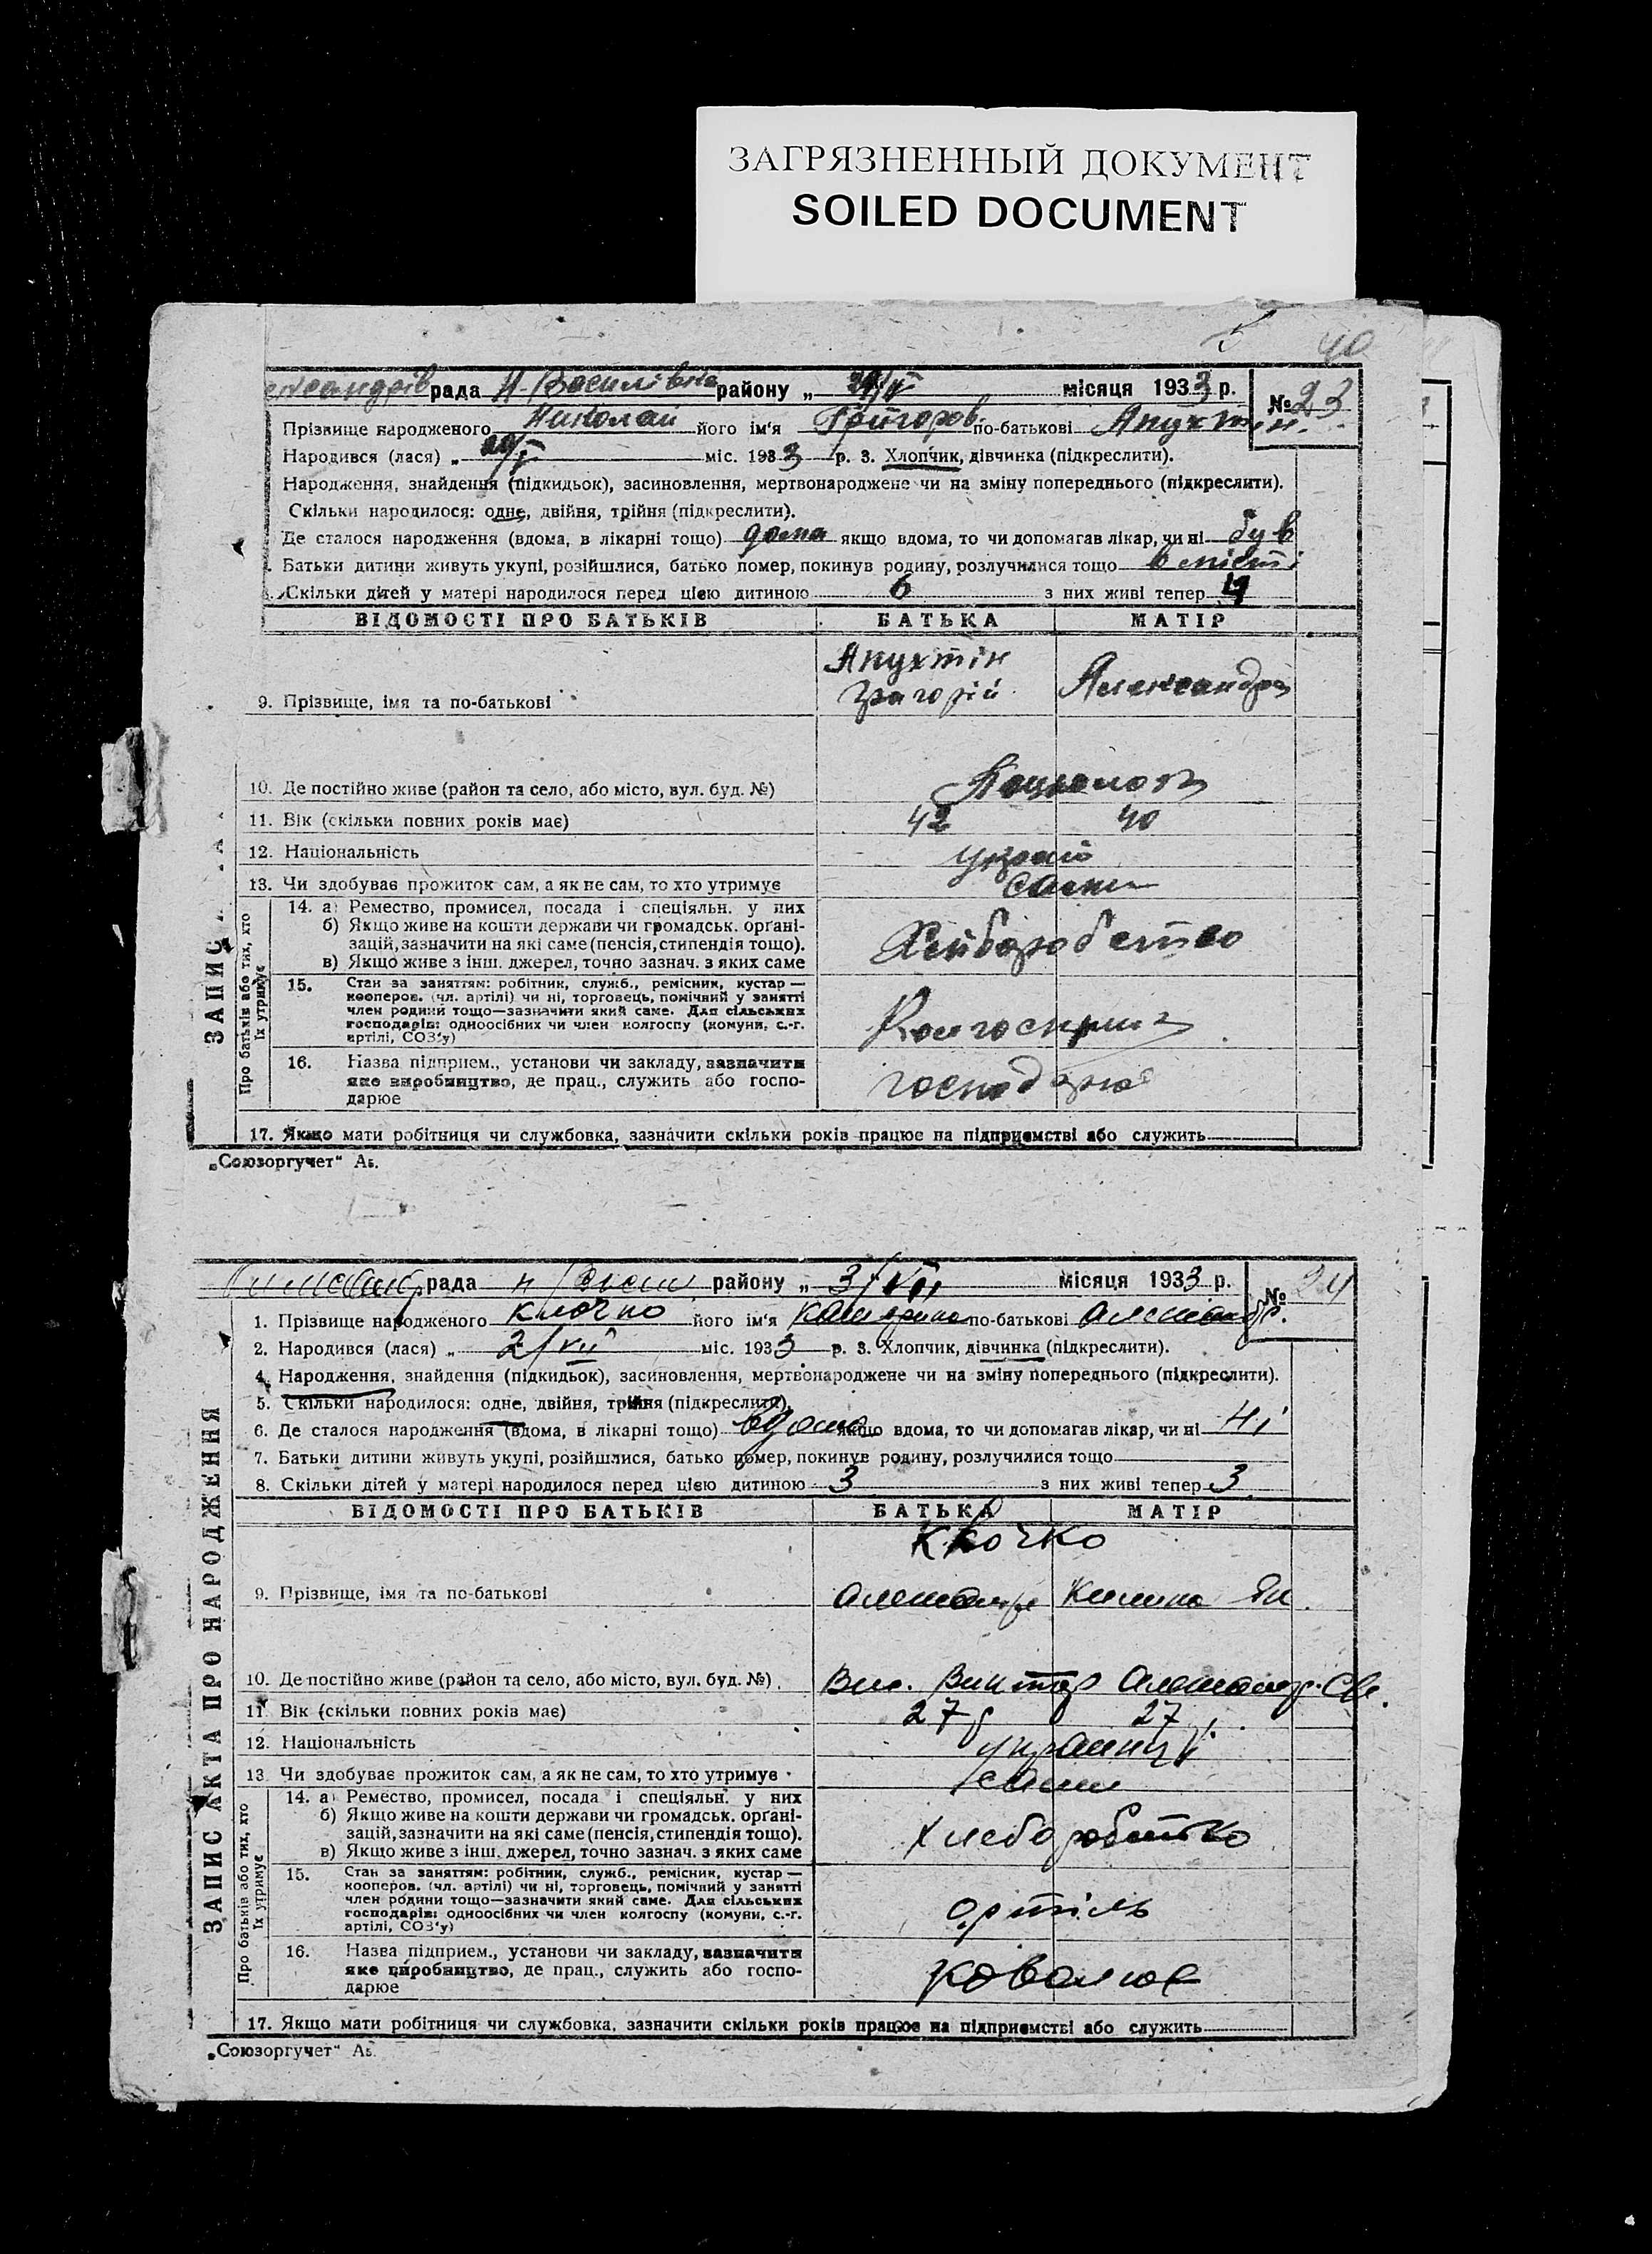 ЗАГРЯЗНЕННЫЙ ДОКУМЕНТ
SOILED DOCUMENT
40
рада Н-Василівка району „ місяця 1933 р. № 23
Прізвище народженого Николай його ім'я Григоров. по-батькові Апухтін.
Народився (лася) „ міс. 1933 р. 3. Хлопчик, дівчинка (підкреслити).
Народження, знайдення (підкидьок), засиновлення, мертвонароджене чи на зміну попереднього (підкреслити).
Скільки народилося: одне, двійня, трійня (підкреслити).
Де сталося народження (вдома, в лікарні тощо) дома якщо вдома, то чи допомагав лікар, чи ні був
Батьки дитини живуть укупі, розійшлися, батько помер, покинув родину, розлучилися тощо в місті
Скільки дітей у матері народилося перед цією дитиною 6 з них живі тепер 4
ВІДОМОСТІ ПРО БАТЬКІВ БАТЬКА МАТІР
Апухтін
9. Прізвище, імя та по-батькові Григорій Александра
10. Де постійно живе (район та село, або місто, вул. буд. №)
11. Вік (скільки повних років має) 42 40
12. Національність україн
13. Чи здобуває прожиток сам, а як не сам, то хто утримує сами
Про батьків або тих, хто їх утримує
14. а) Ремество, промисел, посада і спеціяльн. у них
б) Якщо живе на кошти держави чи громадськ. орґані-
зацій, зазначити на які саме (пенсія, стипендія тощо). Хліборобство
в) Якщо живе з інш. джерел, точно зазнач. з яких саме
15. Стан за заняттям: робітник, служб., ремісник, кустар —
кооперов. (чл. артілі) чи ні, торговець, помічний у занятті
член родини тощо—зазначити який саме. Для сільських
господарів: одноосібних чи член колгоспу (комуни, с.-г.
артілі, СОЗ'у)
16. Назва підприєм., установи чи закладу, зазначити
яке виробництво, де прац., служить або госпо-
дарює господарює
17. Якщо мати робітниця чи службовка, зазначити скільки років працює на підприємстві або служить
„Союзоргучет“ Аз.
рада н Васил. району „ 3/VII місяця 1933 р. № 24
1. Прізвище народженого Клочко його ім'я Катерина по-батькові Александр.
2. Народився (лася) „ 2/VII міс. 1933 р. 3. Хлопчик, дівчинка (підкреслити).
4. Народження, знайдення (підкидьок), засиновлення, мертвонароджене чи на зміну попереднього (підкреслити).
5. Скільки народилося: одне, двійня, трійня (підкреслити).
6. Де сталося народження (вдома, в лікарні тощо) вдома якщо вдома, то чи допомагав лікар, чи ні ні
7. Батьки дитини живуть укупі, розійшлися, батько помер, покинув родину, розлучилися тощо
8. Скільки дітей у матері народилося перед цією дитиною 3 з них живі тепер 3
ВІДОМОСТІ ПРО БАТЬКІВ БАТЬКА МАТІР
Клочко
9. Прізвище, імя та по-батькові Александр
10. Де постійно живе (район та село, або місто, вул. буд. №)
11. Вік (скільки повних років має) 27 27
12. Національність українці
13. Чи здобуває прожиток сам, а як не сам, то хто утримує сами
ЗАПИС АКТА ПРО НАРОДЖЕННЯ
Про батьків або тих, хто їх утримує
14. а) Ремество, промисел, посада і спеціяльн. у них
б) Якщо живе на кошти держави чи громадськ. орґані-
зацій, зазначити на які саме (пенсія, стипендія тощо). хлеборобство
в) Якщо живе з інш. джерел, точно зазнач. з яких саме
15. Стан за заняттям: робітник, служб., ремісник, кустар —
кооперов. (чл. артілі) чи ні, торговець, помічний у занятті
член родини тощо—зазначити який саме. Для сільських
господарів: одноосібних чи член колгоспу (комуни, с.-г. ортіль
артілі, СОЗ'у)
16. Назва підприєм., установи чи закладу, зазначити
яке виробництво, де прац., служить або госпо- ковалює
дарює
17. Якщо мати робітниця чи службовка, зазначити скільки років працює на підприємстві або служить
„Союзоргучет“ Аз.